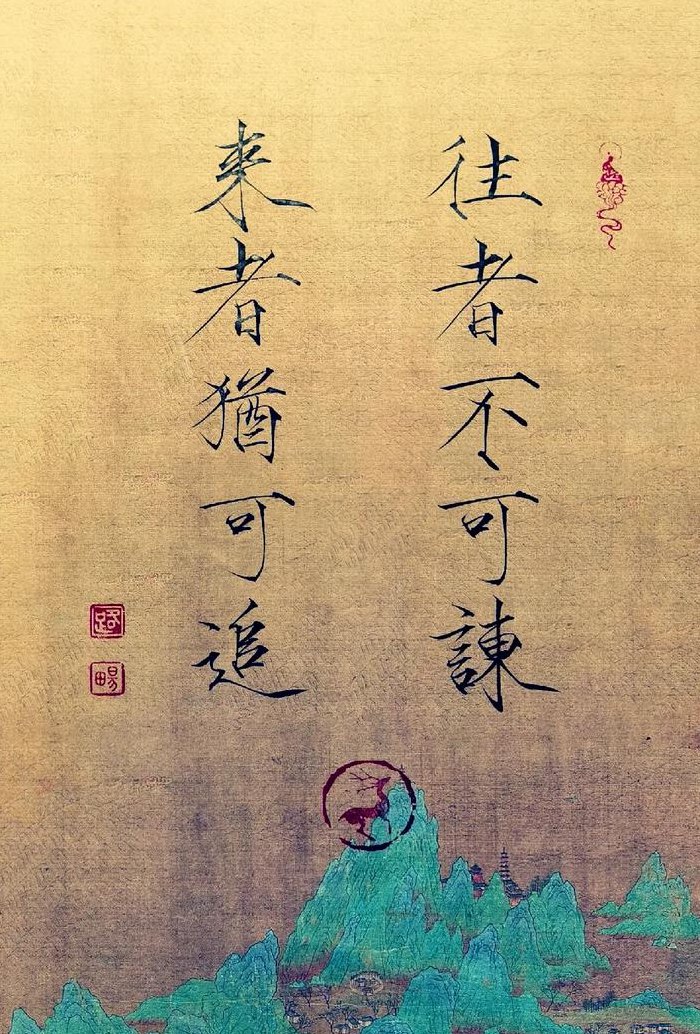 往者不可諫
来者猶可追
路
暢